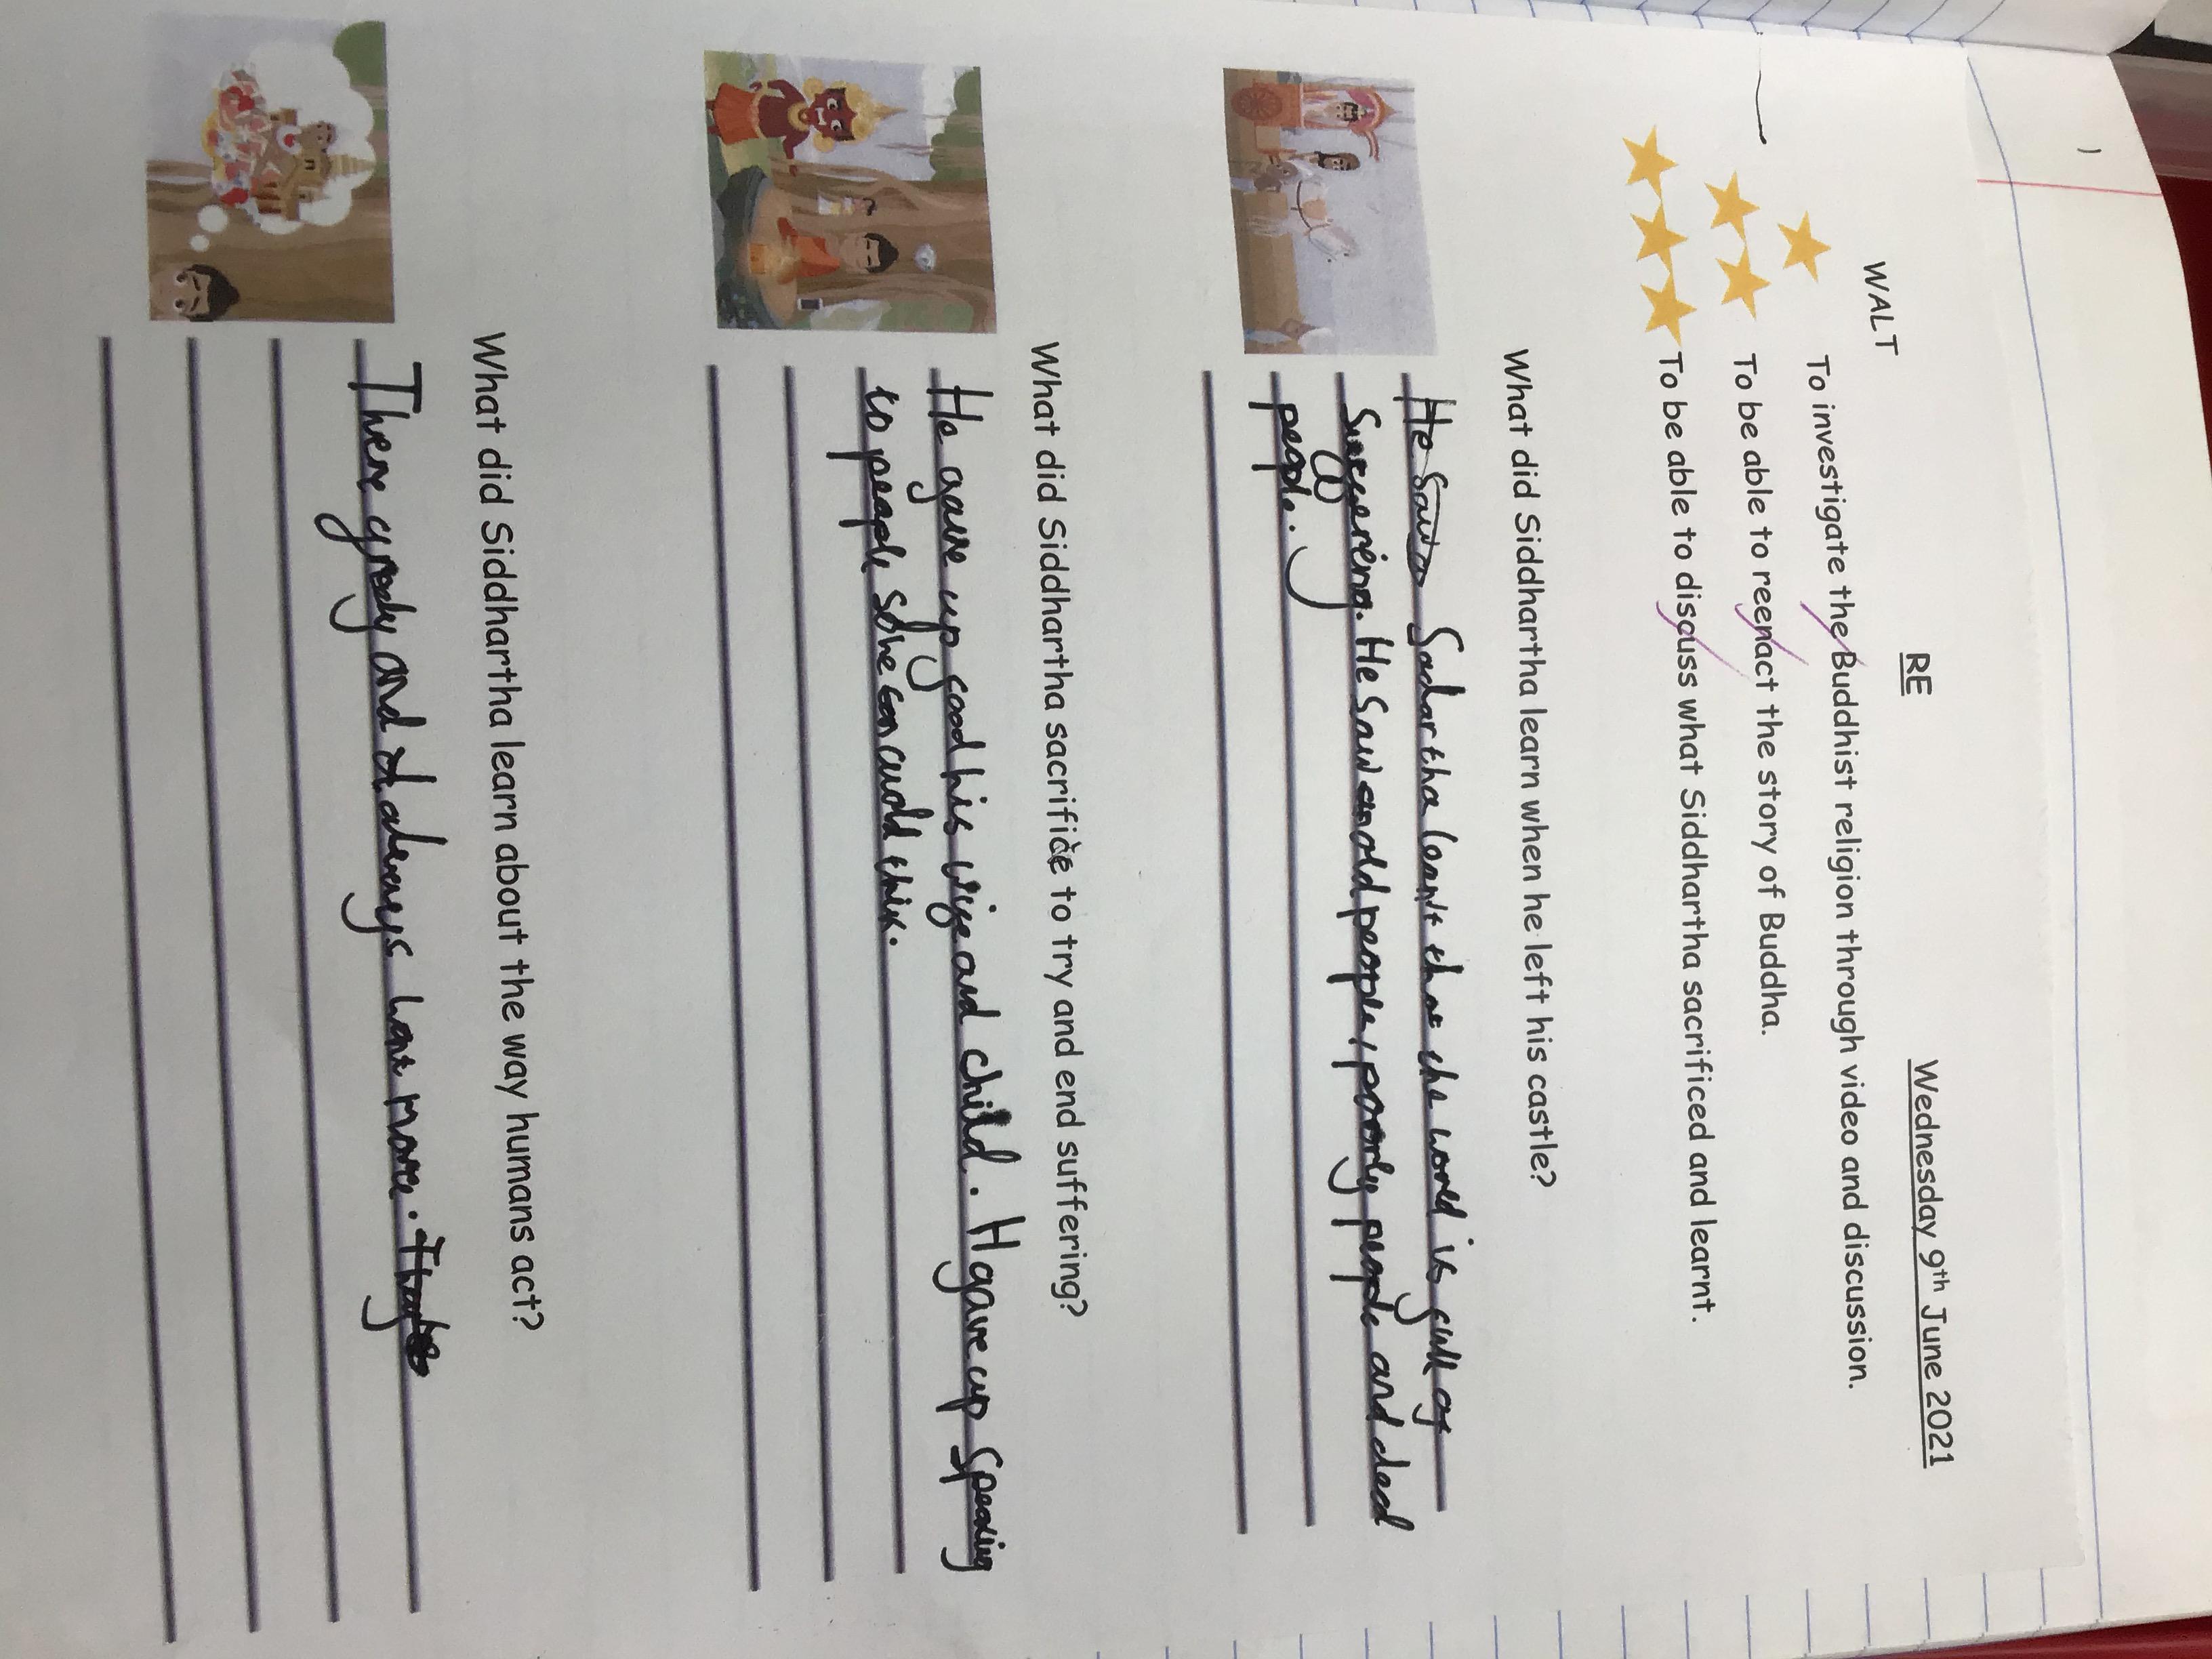 RE
Wednesday 9th June 2021
WALT
To investigate the Buddhist religion through video and discussion.
To be able to reenact the story of Buddha.
To be able to discuss what Siddhartha sacrificed and learnt.
What did Siddhartha learn when he left his castle?
He saw Sadartha leant that the world is full of
Suffering. He Saw an old people, poorly people and dead
people.
What did Siddhartha sacrifice to try and end suffering?
He gave up food his wife and child. H gave up Speaking
to people so he can could think.
What did Siddhartha learn about the way humans act?
There greedy and always want more.